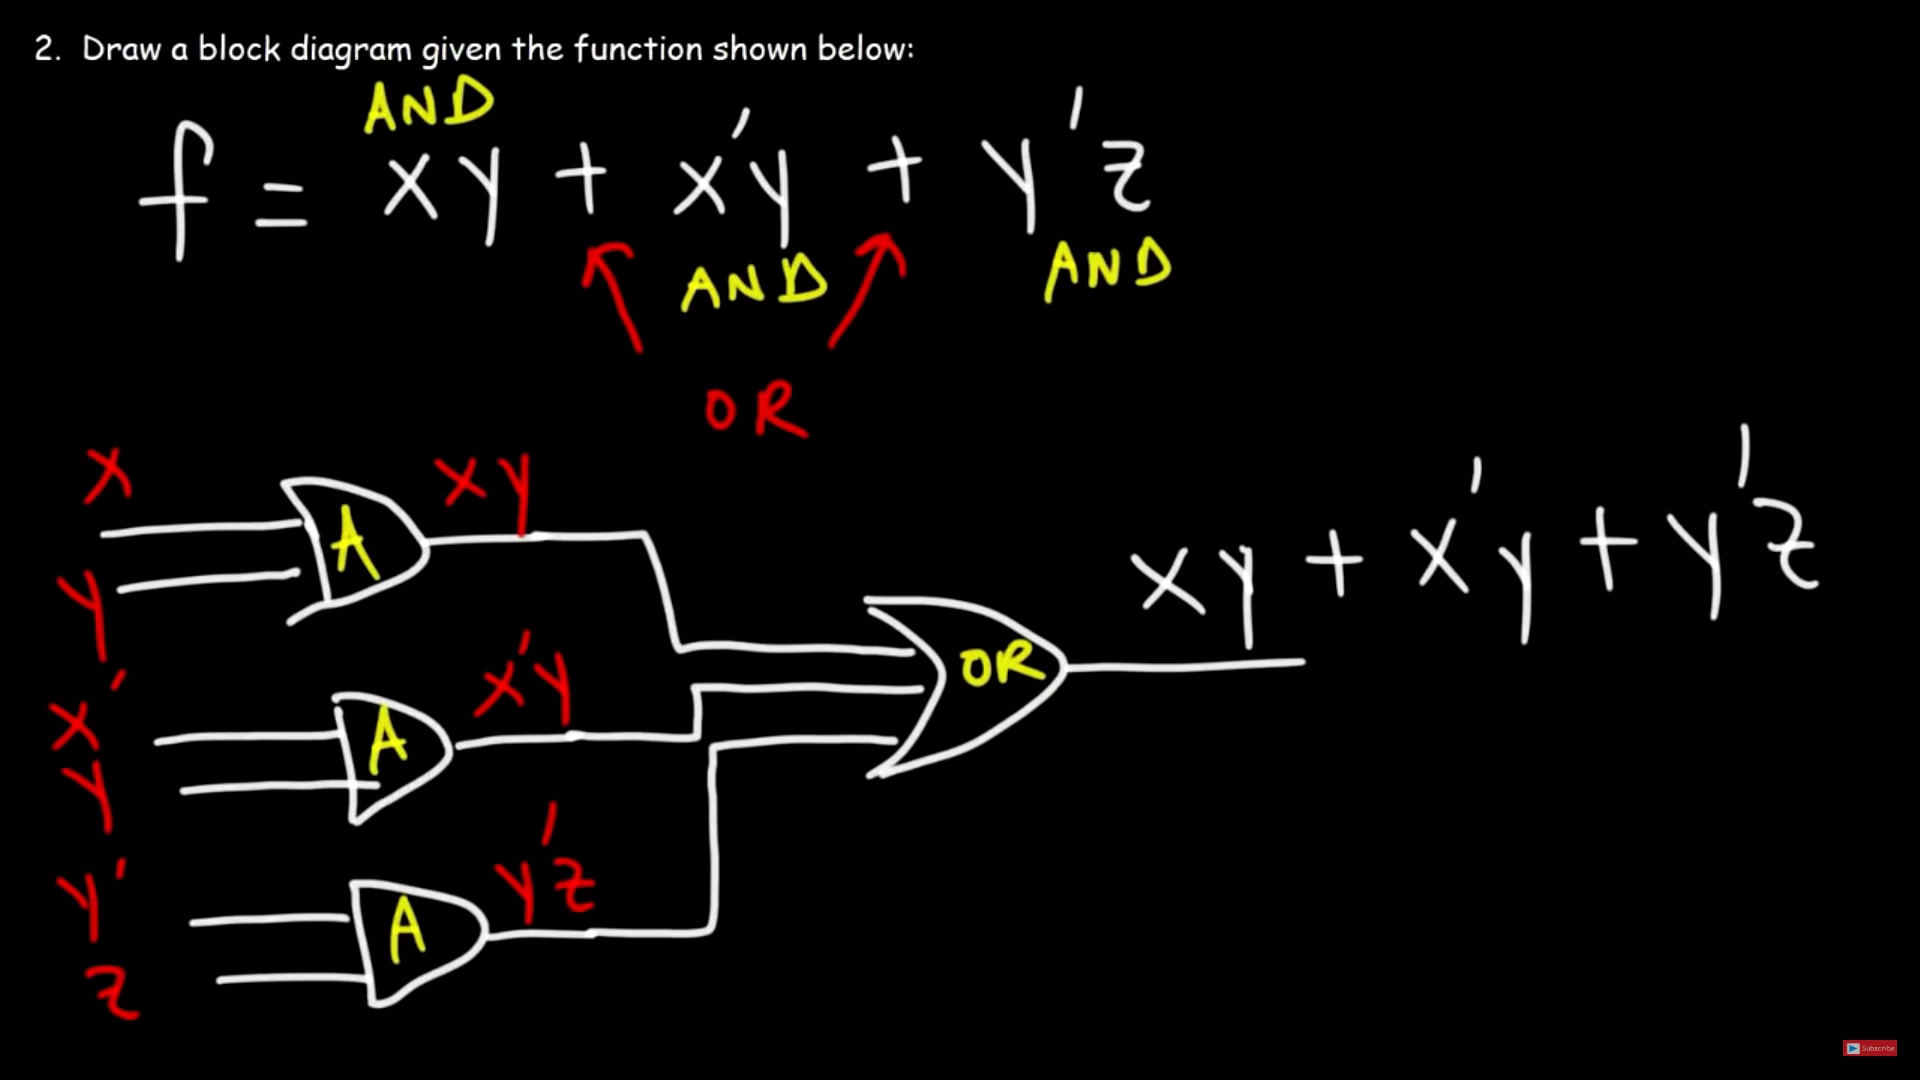 2. Draw a block diagram given the function shown below:
AND
f = xy + x'y + y'z
AND
AND
OR
x
xy
A
y
xy + x'y + y'z
OR
x'y
x'
A
y
y'z
y'
A
z
Subscribe